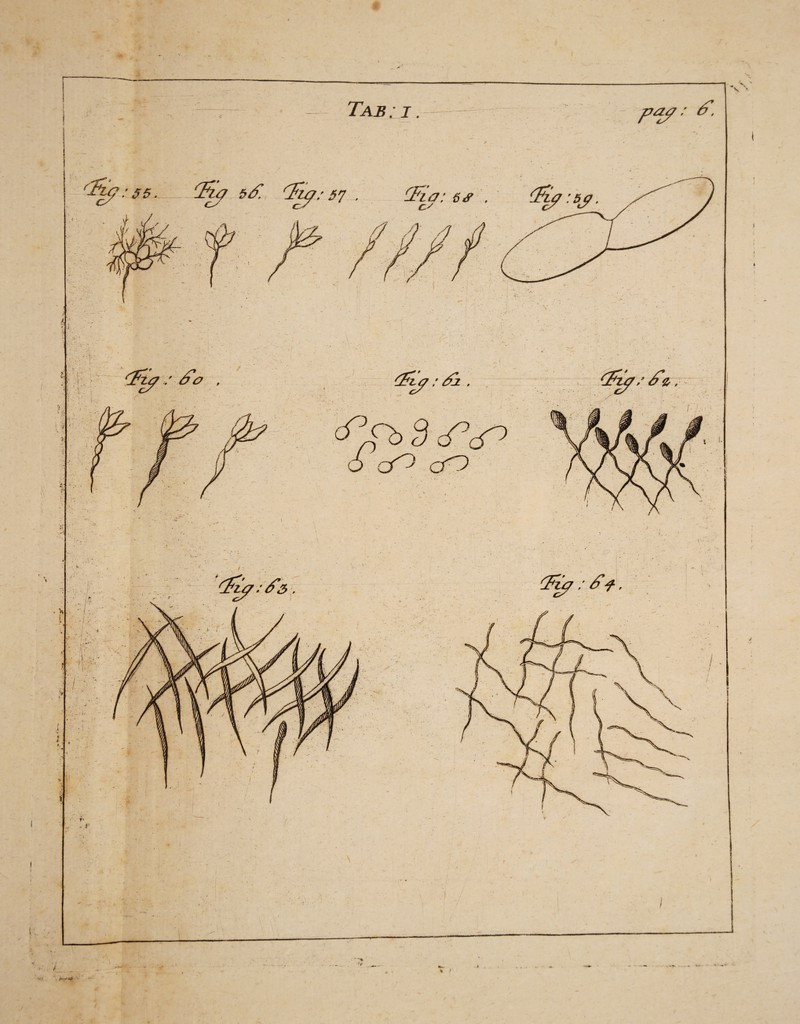 TAB: I.
pag: 6.
Fig: 55.
Fig 56.
Fig: 57.
Fig: 58.
Fig: 59.
Fig: 60.
Fig: 61.
Fig: 62.
Fig: 63.
Fig: 64.